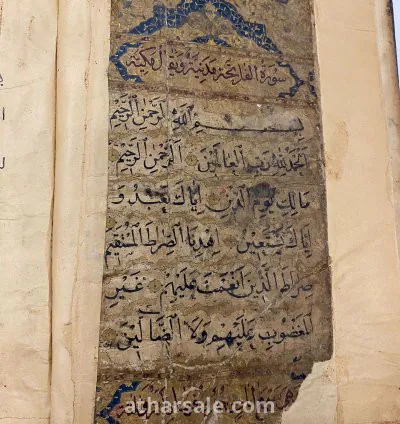 سورة الفاتحة مدنية ويقال مكية
بسم الله الرحمن الرحيم
الحمد لله رب العالمين الرحمن الرحيم
مالك يوم الدين إياك نعبد و
إياك نستعين اهدنا الصراط المستقيم
صراط الذين أنعمت عليهم غير
المغضوب عليهم ولا الضالين
atharsale.com